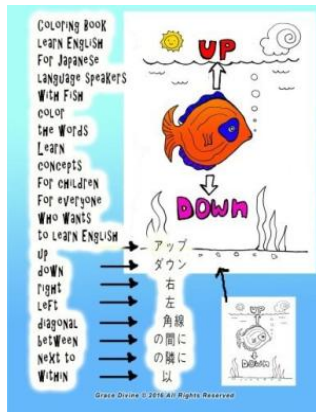 Coloring Book
Learn English
For Japanese
Language Speakers
With Fish
Color
the Words
Learn
Concepts
For Children
For everyone
Who Wants
to Learn English
up
down
right
Left
diagonal
between
Next to
Within
アップ
ダウン
右
左
角線
の間に
の隣に
以
UP
DOWN
UP
DOWN
Grace Divine © 2016 All Rights Reserved